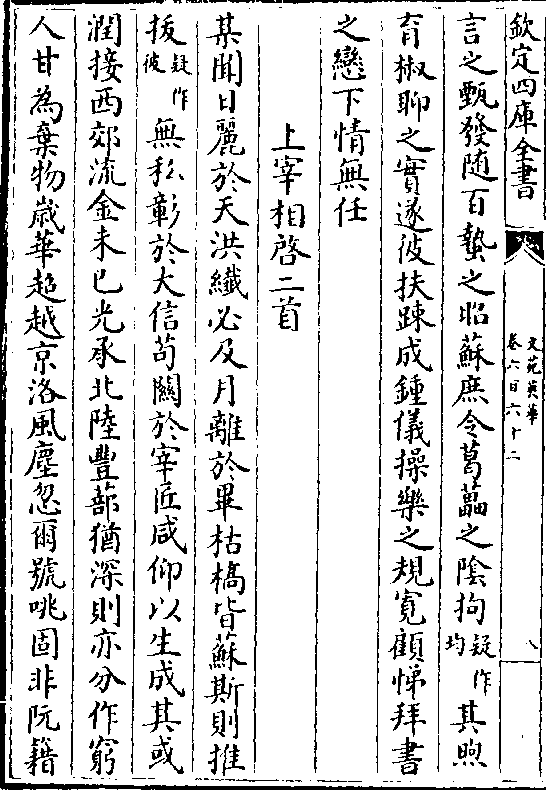 欽定四庫全書
文苑英華
卷六百六十二
八
言之甄發随百蟄之昭蘇庶令葛藟之陰拘疑作均其煦
育椒聊之實遂彼扶踈成鍾儀操樂之規寛顧悌拜書
之戀下情無任
上宰相啓二首
某聞日麗於天洪纖必及月離於畢枯槁皆蘇斯則推
扳疑作彼無私彰於大信苟關於宰匠咸仰以生成其或
潤接西郊流金未已光承北陸豐蔀猶深則亦分作窮
人甘為棄物嵗華超越京洛風塵忽爾號咷固非阮籍